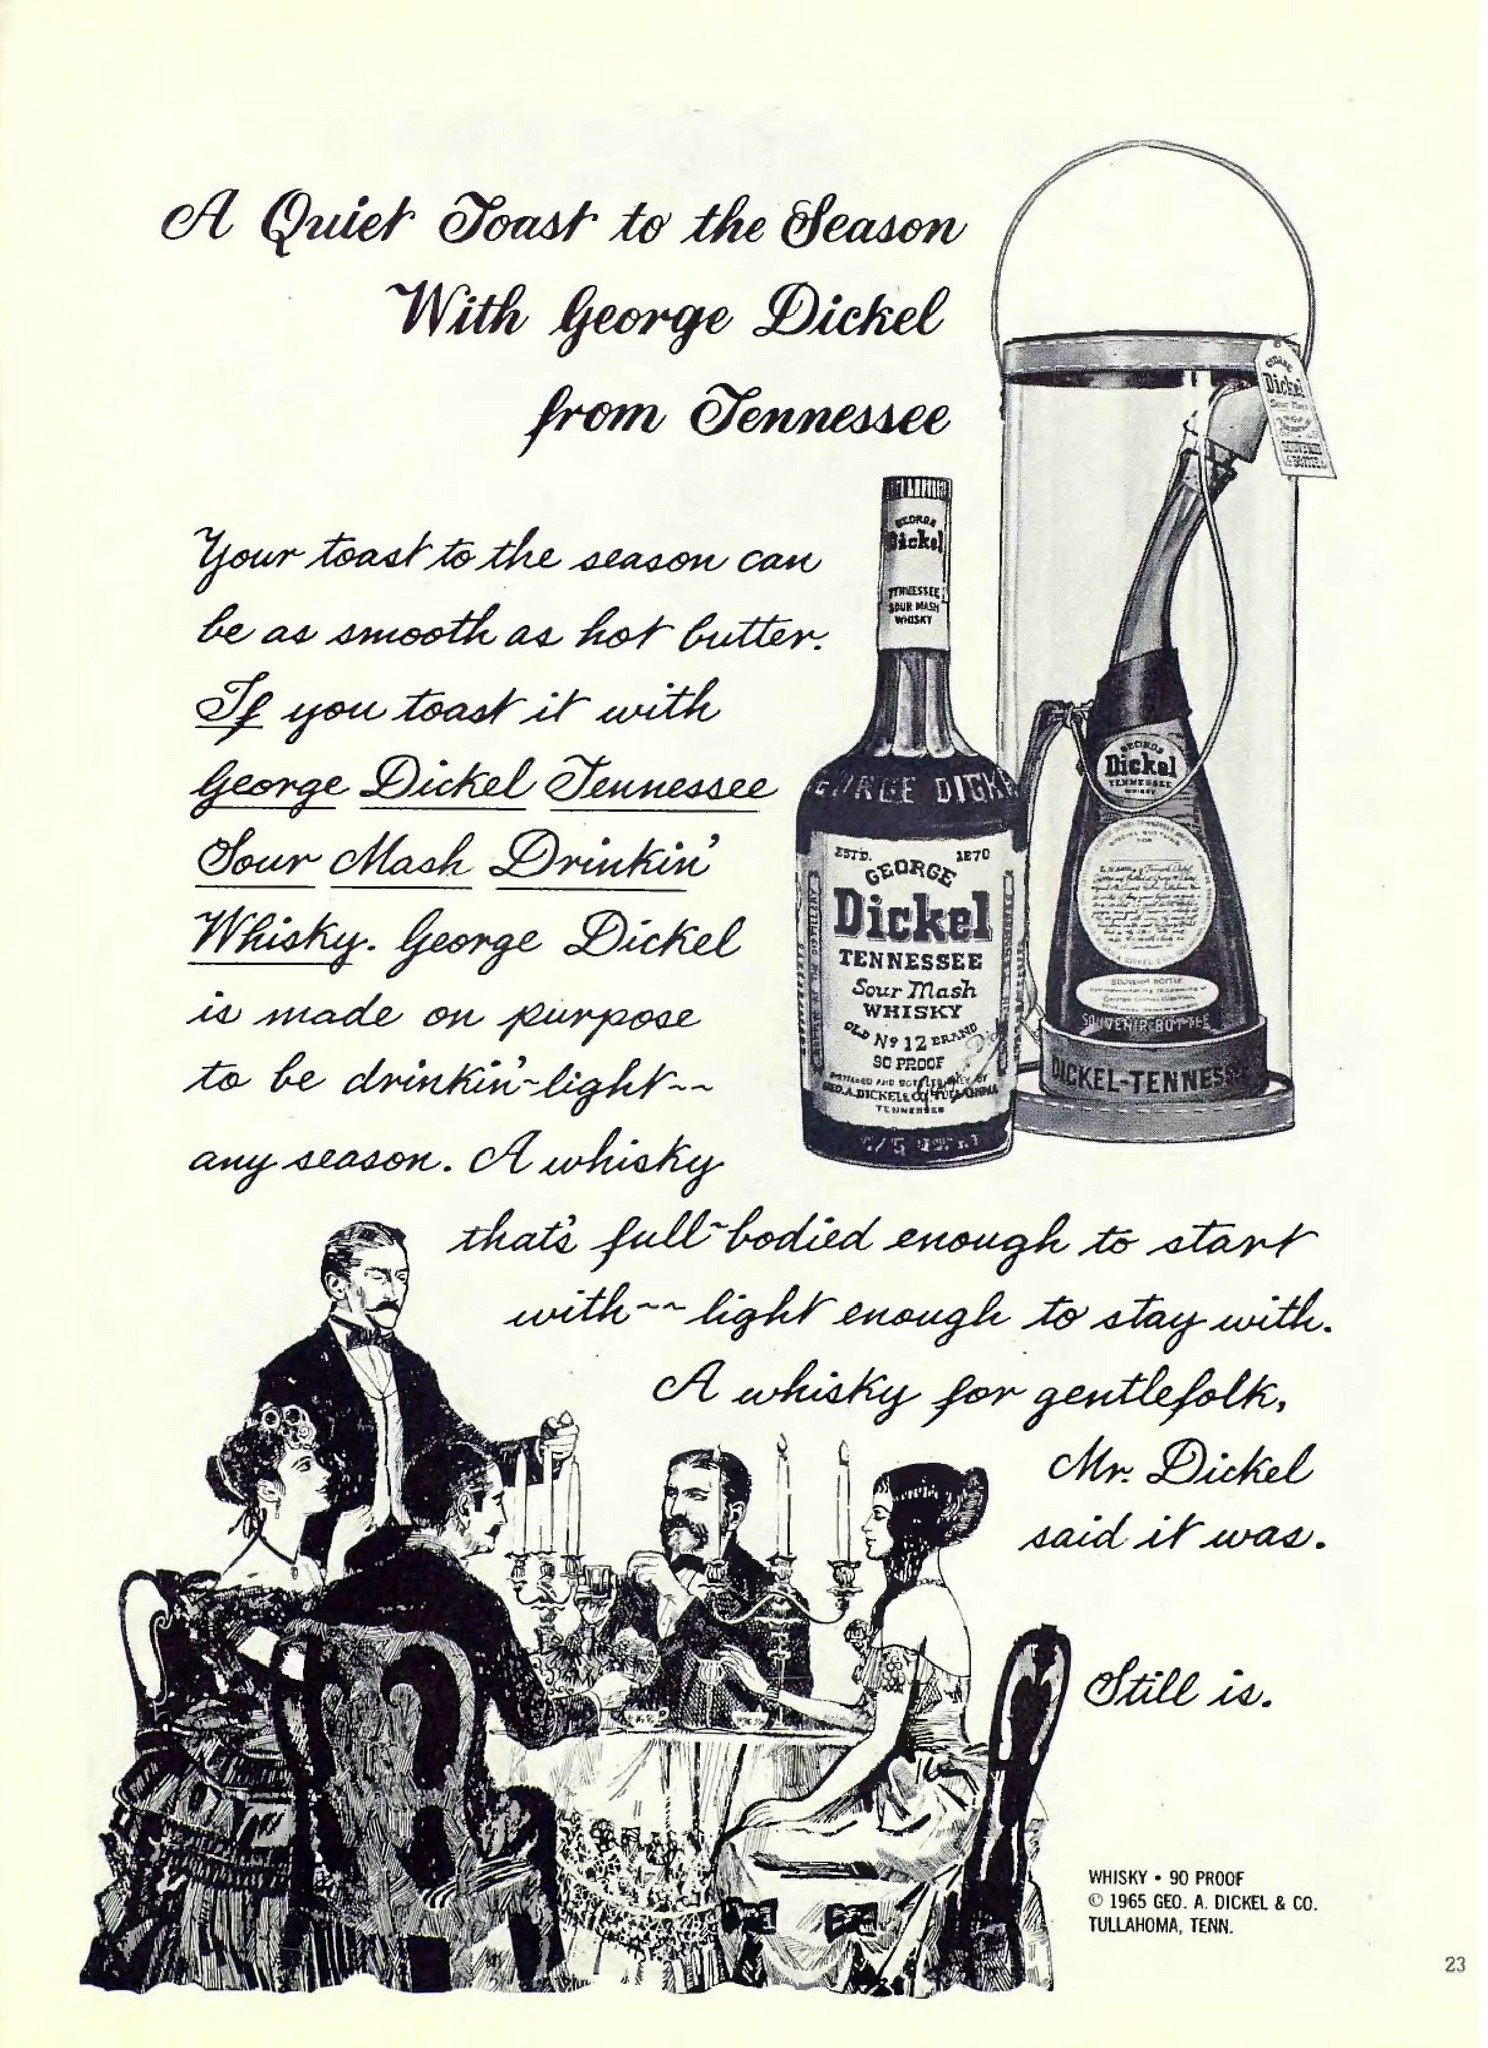 A Quiet Toast to the Season
With George Dickel
from Tennessee
Your toast to the season can
be as smooth as hot butter.
If you toast it with
George Dickel Tennessee
Sour Mash Drinkin'
Whisky. George Dickel
is made on purpose
to be drinkin'-light--
any season. A whisky
that's full-bodied enough to start
with-- light enough to stay with.
A whisky for gentlefolk,
Mr. Dickel
said it was.
Still is.
GEORGE
Dickel
TENNESSEE
SOUR MASH
WHISKY
GEORGE DICKE
ESTD. 1870
GEORGE
Dickel
TENNESSEE
Sour Mash
WHISKY
OLD No 12 BRAND
90 PROOF
DISTILLED AND BOTTLED BY
GEO. A. DICKEL & CO. TULLAHOMA
TENNESSEE
4/5 QUART
GEORGE
Dickel
Sour Mash
SOUVENIR
BOTTLE
GEORGE
Dickel
TENNESSEE
WHISKY
SOUVENIR BOTTLE
SOUVENIR BOTTLE
DICKEL-TENNESSE
WHISKY • 90 PROOF
© 1965 GEO. A. DICKEL & CO.
TULLAHOMA, TENN.
23